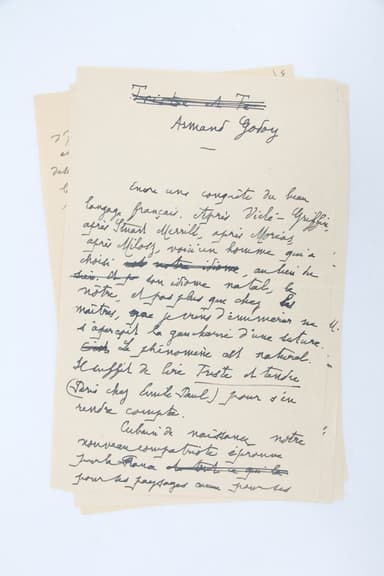 Triste et Te
Armand Godoy
Encore une conquête du beau
langage français. Après Vielé-Griffin,
après Stuart Merrill, après Moréas,
après Milosz, voici un homme qui a
choisi notre idiome, au lieu de
son idiome natal, le
nôtre, et pas plus que chez les
maîtres, que je viens d'énumérer ne
s'aperçoit la gaucherie d'une suture.
Le phénomène est naturel.
Il suffit de lire Triste et tendre
(Paris chez Emile Paul) pour s'en
rendre compte.
Cubain de naissance notre
nouveau compatriote éprouve
pour la France et tout ce qui
pour ses paysages comme pour ses